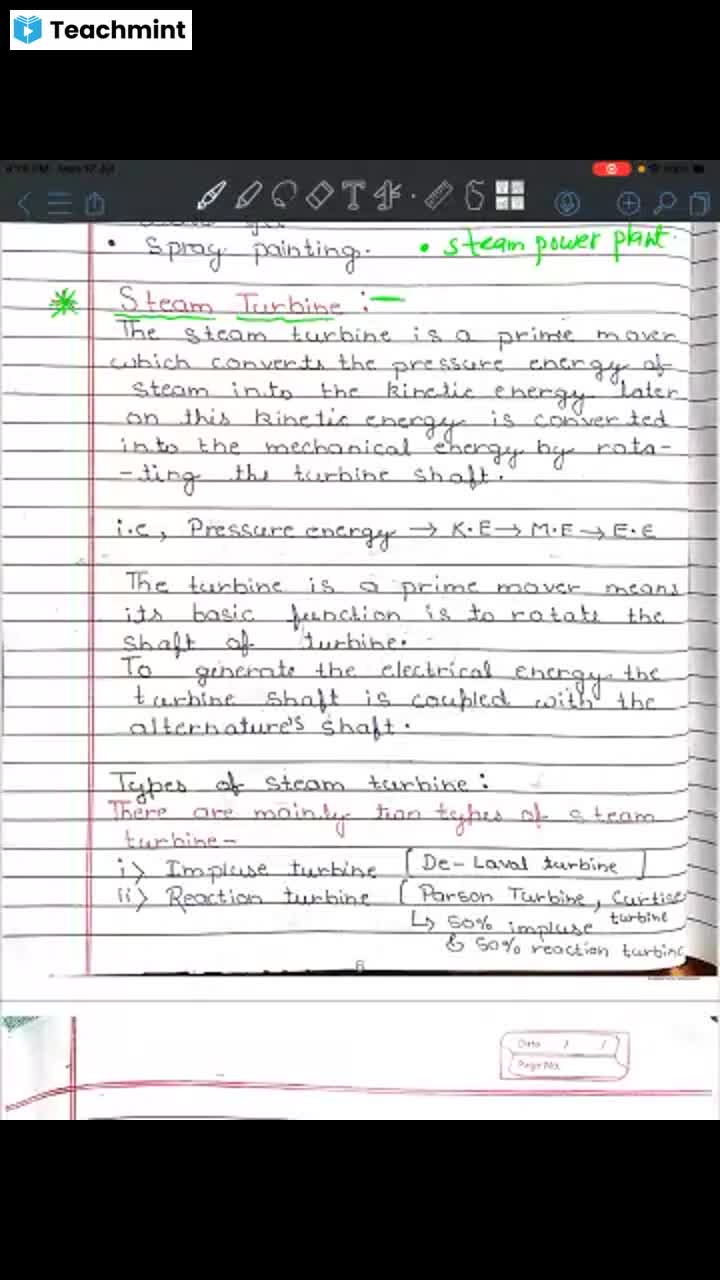 Teachmint
• Spray painting. • steam power plant.
* Steam Turbine :-
The steam turbine is a prime mover
which converts the pressure energy of
steam into the kinetic energy later
on this kinetic energy is converted
into the mechanical energy by rota-
-ting the turbine shaft.
i.e, Pressure energy → K.E → M.E → E.E
The turbine is a prime mover means
its basic function is to rotate the
shaft of turbine.
To generate the electrical energy the
turbine shaft is coupled with the
alternature's shaft.
Types of steam turbine :
There are mainly two types of steam
turbine-
i> Impluse turbine [De-Laval turbine]
ii> Reaction turbine [Parson Turbine, Curtise
turbine
↳ 50% impluse
& 50% reaction turbine
6
Date / /
Page No.